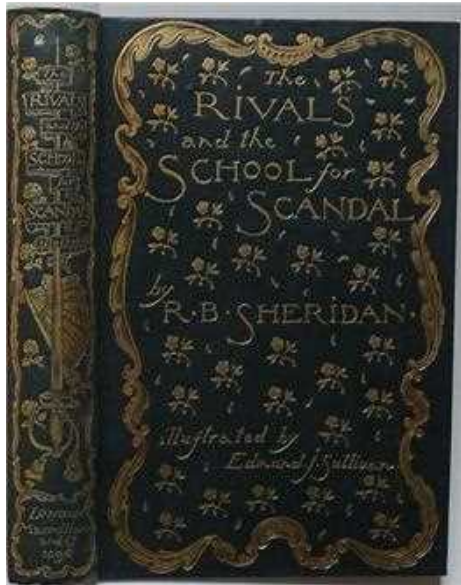 The
RIVALS
and the
SCHOOL
for
SCANDAL
The
RIVALS
and the
SCHOOL for
SCANDAL
by
R. B. SHERIDAN.
Illustrated by
Edmund J. Sullivan
London
Macmillan
and Co